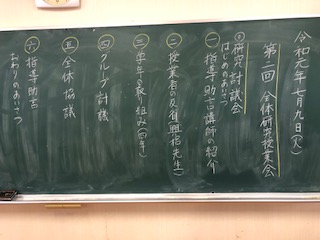 令和元年七月九日(火)
第二回 全体研究授業会
◎研究討議会
はじめのあいさつ
一 指導助言講師の紹介
二 授業者の反省(興梠先生)
三 学年の取り組み(四年)
四 グループ討議
五 全体協議
六 指導助言
おわりのあいさつ